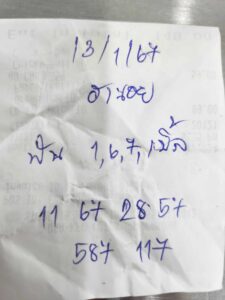 13/1/67
ฮานอย
ฟัน 1,6,7, เบิ้ล
11 67 28 57
587 117